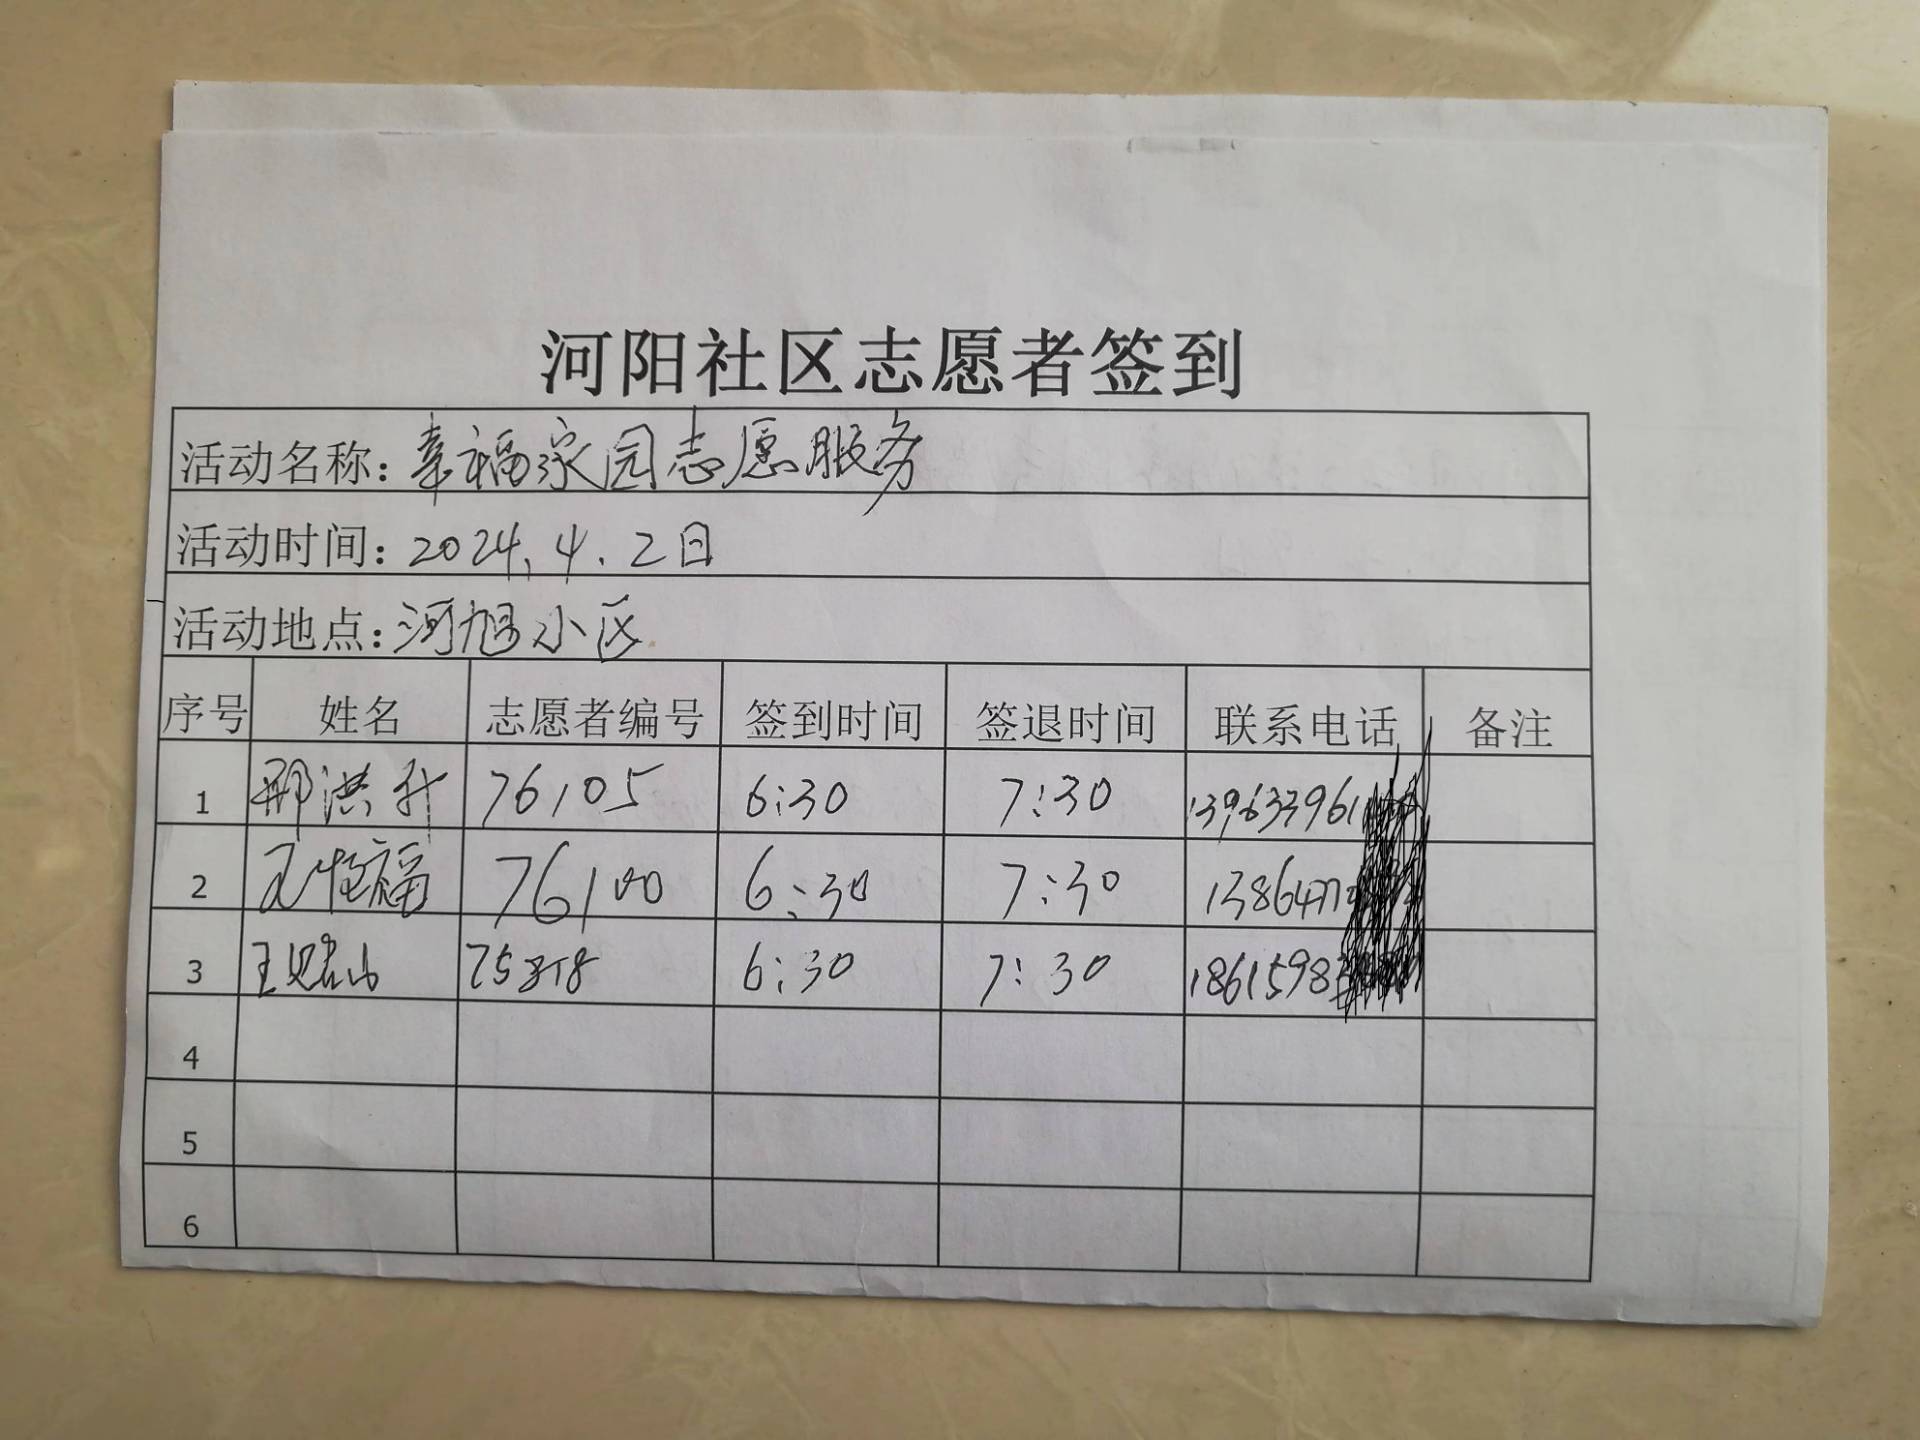 河阳社区志愿者签到
活动名称：幸福家园志愿服务
活动时间：2024.4.2日
活动地点：河旭小区
序号 姓名 志愿者编号 签到时间 签退时间 联系电话 备注
1 邢洪升 76105 6:30 7:30 139633961
2 王恒福 76100 6:30 7:30 1386477
3 王 山 75818 6:30 7:30 18615983
4
5
6